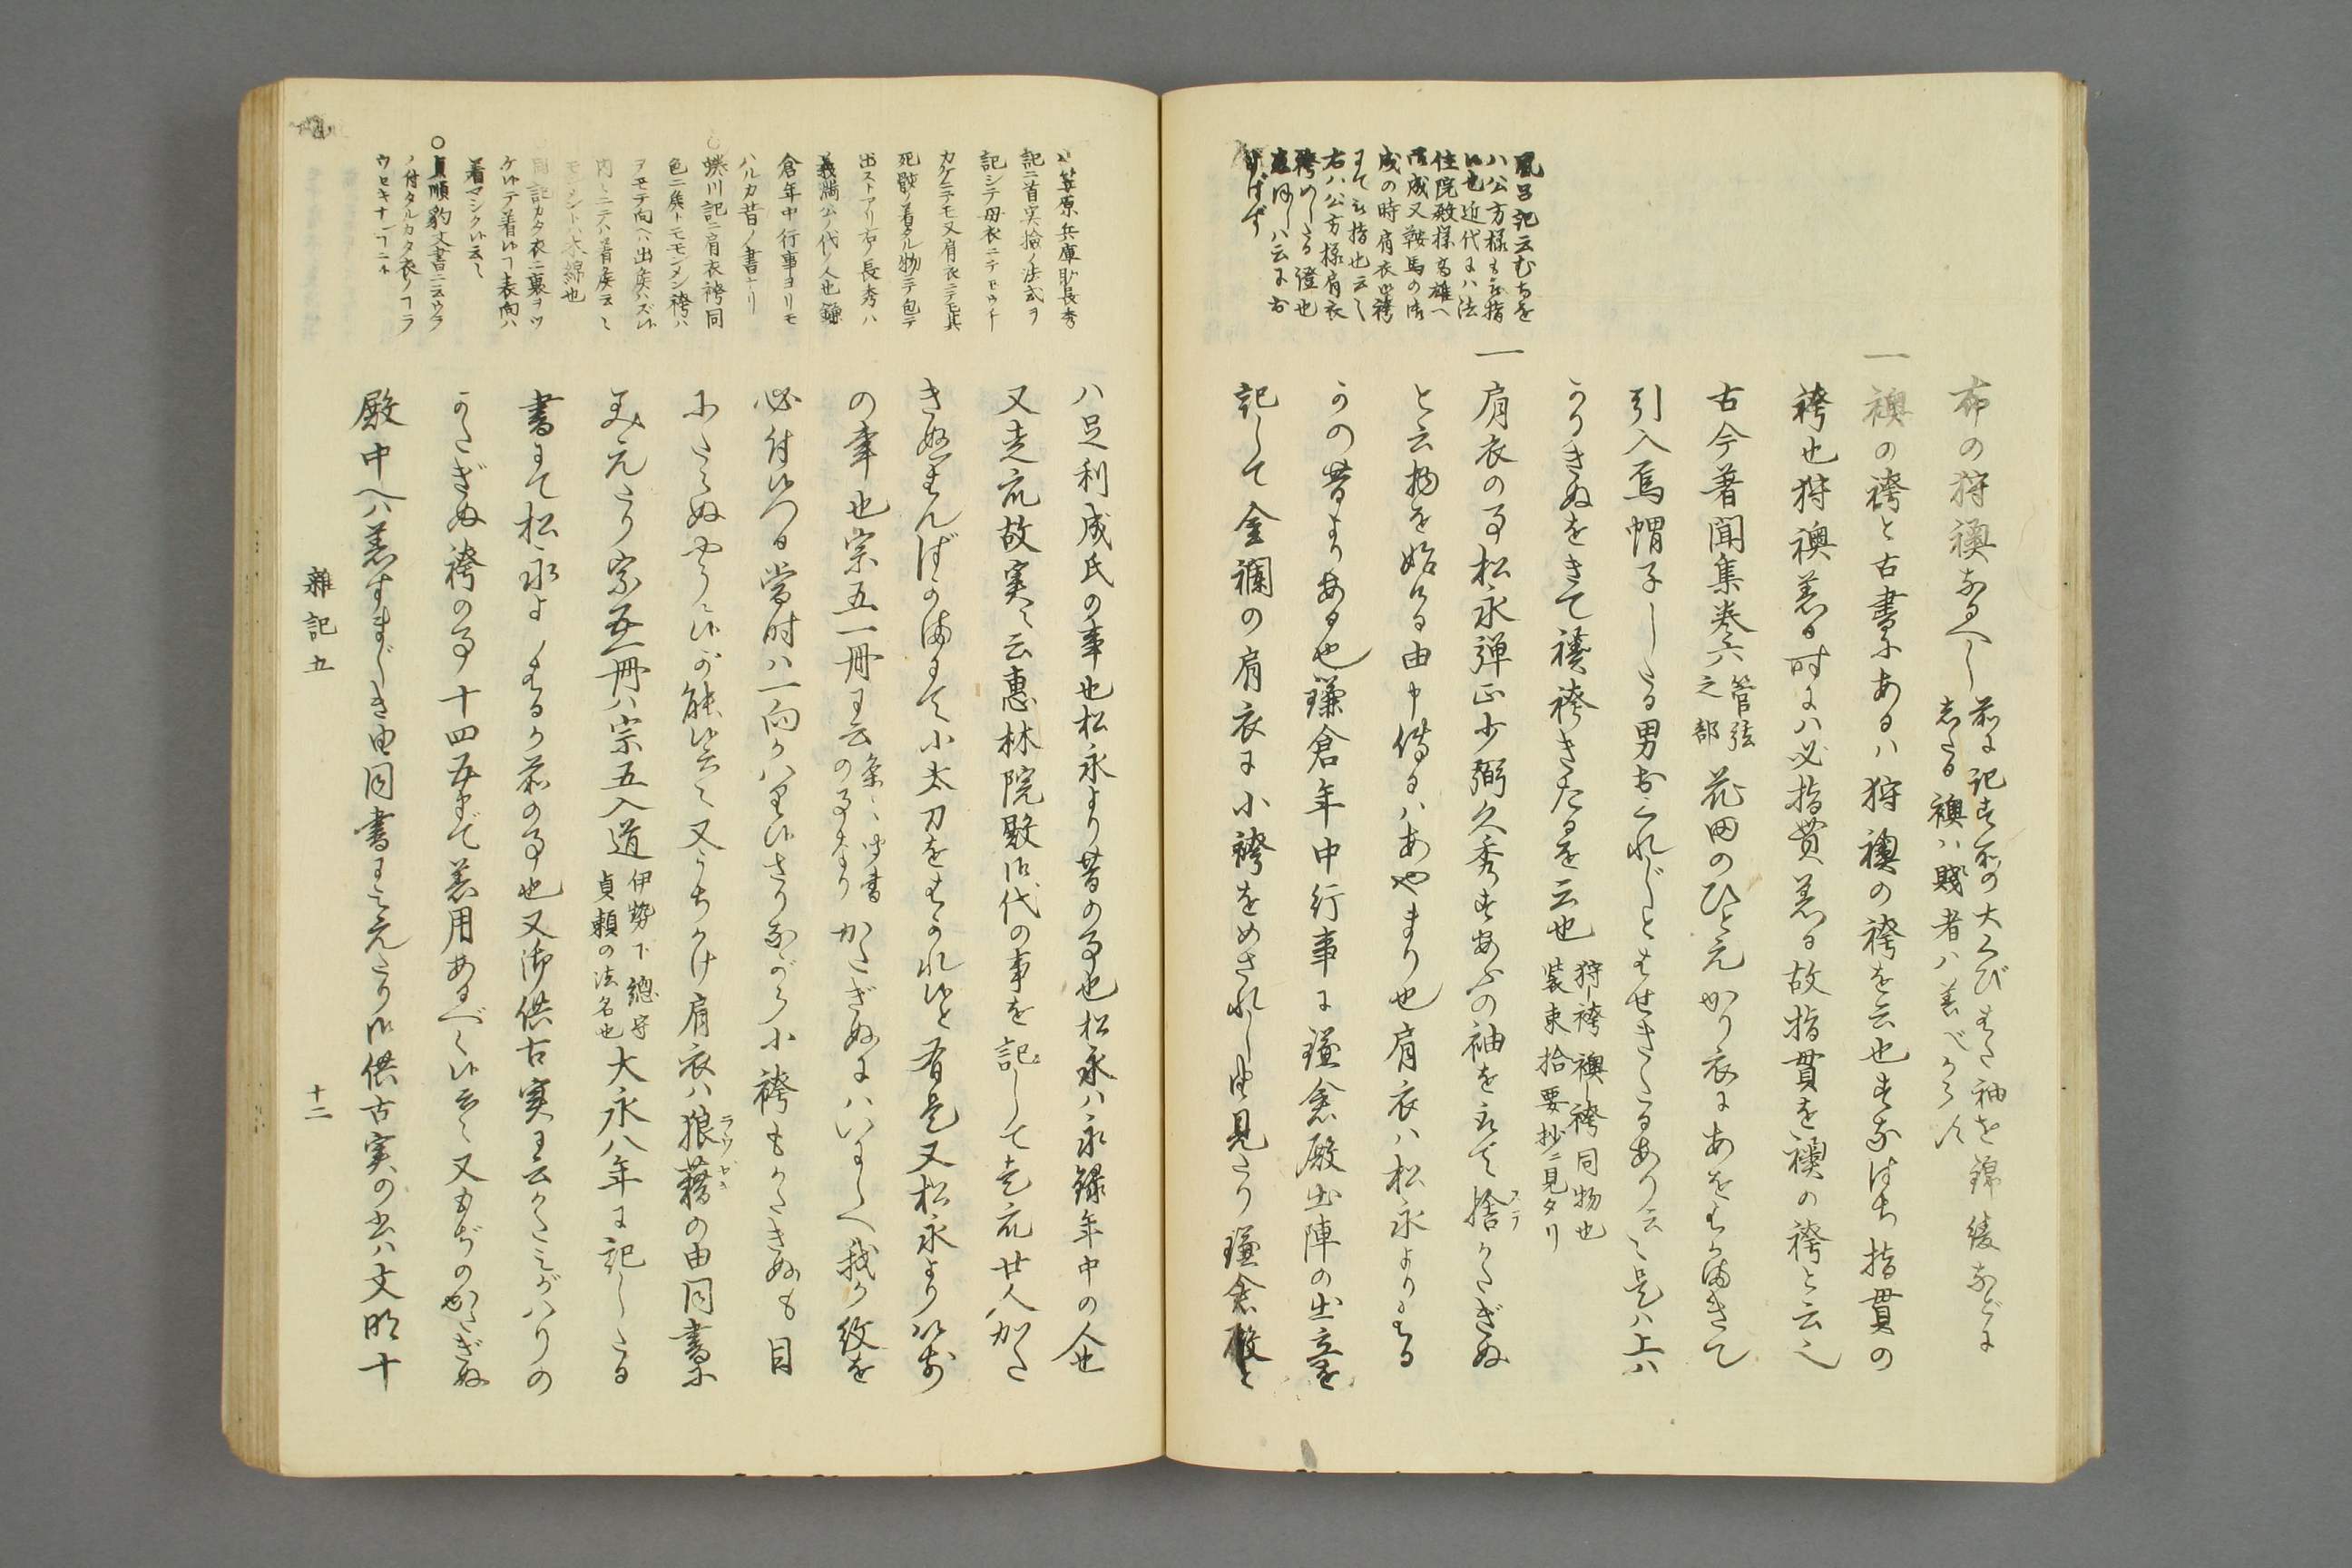 布の狩襖なるへし
一襖の袴と古書にあるハ狩襖の袴を云也すなはち指貫の
袴也狩襖着る時にハ必指貫着る故指貫を襖の袴と云也
古今著聞集巻六管弦之部花田のひとえかり衣にあをはかまきて
引入烏帽子したる男おくれじとはせきたるあり云々是ハ上ハ
かりきぬをきて襖袴きたるを云也狩袴襖袴同物也装束拾要抄ニ見タリ
一肩衣の事松永弾正少弼久秀すあふの袖を取て捨かたぎぬ
と云物を始ける由申傳るハあやまり也肩衣ハ松永よりはる
かの昔よりある也鎌倉年中行事に鎌倉殿出陣の出立を
記して金襴の肩衣に小袴をめされし由見たり鎌倉殿と
風呂記云むちを
ハ公方様も被指
候也近代にハ法
住院殿様高雄へ
御成又鞍馬の御
成の時肩衣小袴
にて被指也云々
右ハ公方様肩衣
袴めしたる證也
ハ足利成氏の事也松永より昔の事也松永ハ永録年中の人也
又走衆故実ニ云惠林院殿御代の事を記して走衆廿人かた
きぬはんばかまにて小太刀をはかれ候と有是又松永より以前
の事也宗五一冊に云条々聞書の事なりかたぎぬにハいにしへ我か紋を
必付候つる当時ハ一向かハり候さりながら小袴もかたきぬも目
にたゝぬやうに候が能候云々又うちかけ肩衣ハ狼藉の由同書に
みえたり宗五一冊ハ宗五入道伊勢下總守貞頼の法名也大永八年に記したる
書にて松永よりはるか前の事也又御供古実に云かたミがハりの
かたぎぬ袴の事十四五まで着用あるべく候云々又もぢのかたぎぬ
殿中へハ着すまじき由同書にみえたり御供古実の書ハ文明十
小笠原兵庫助長秀
記ニ首実検ノ法式ヲ
記シテ母衣ニテモウチ
カケニテモ又肩衣ニテモ其
死骸ノ着タル物ニテ包テ
出ストアリ右ノ長秀ハ
義満公ノ代ノ人也鎌
倉年中行事ヨリモ
ハルカ昔ノ書ナリ
○蜷川記ニ肩衣袴同
色ニ候トモモンメン袴ハ
ヲモテ向ヘハ出候ハズ候
内々ニテハ着候云々
モンメントハ木綿也
同記カタ衣ニ裏ヲツ
ケ候テ着候コト表向ハ
着マシク候云々
○貞順豹文書ニ云ウラ
ノ付タルカタ衣ノコトラ
ウセキナンコトニ候
雑記五
十二